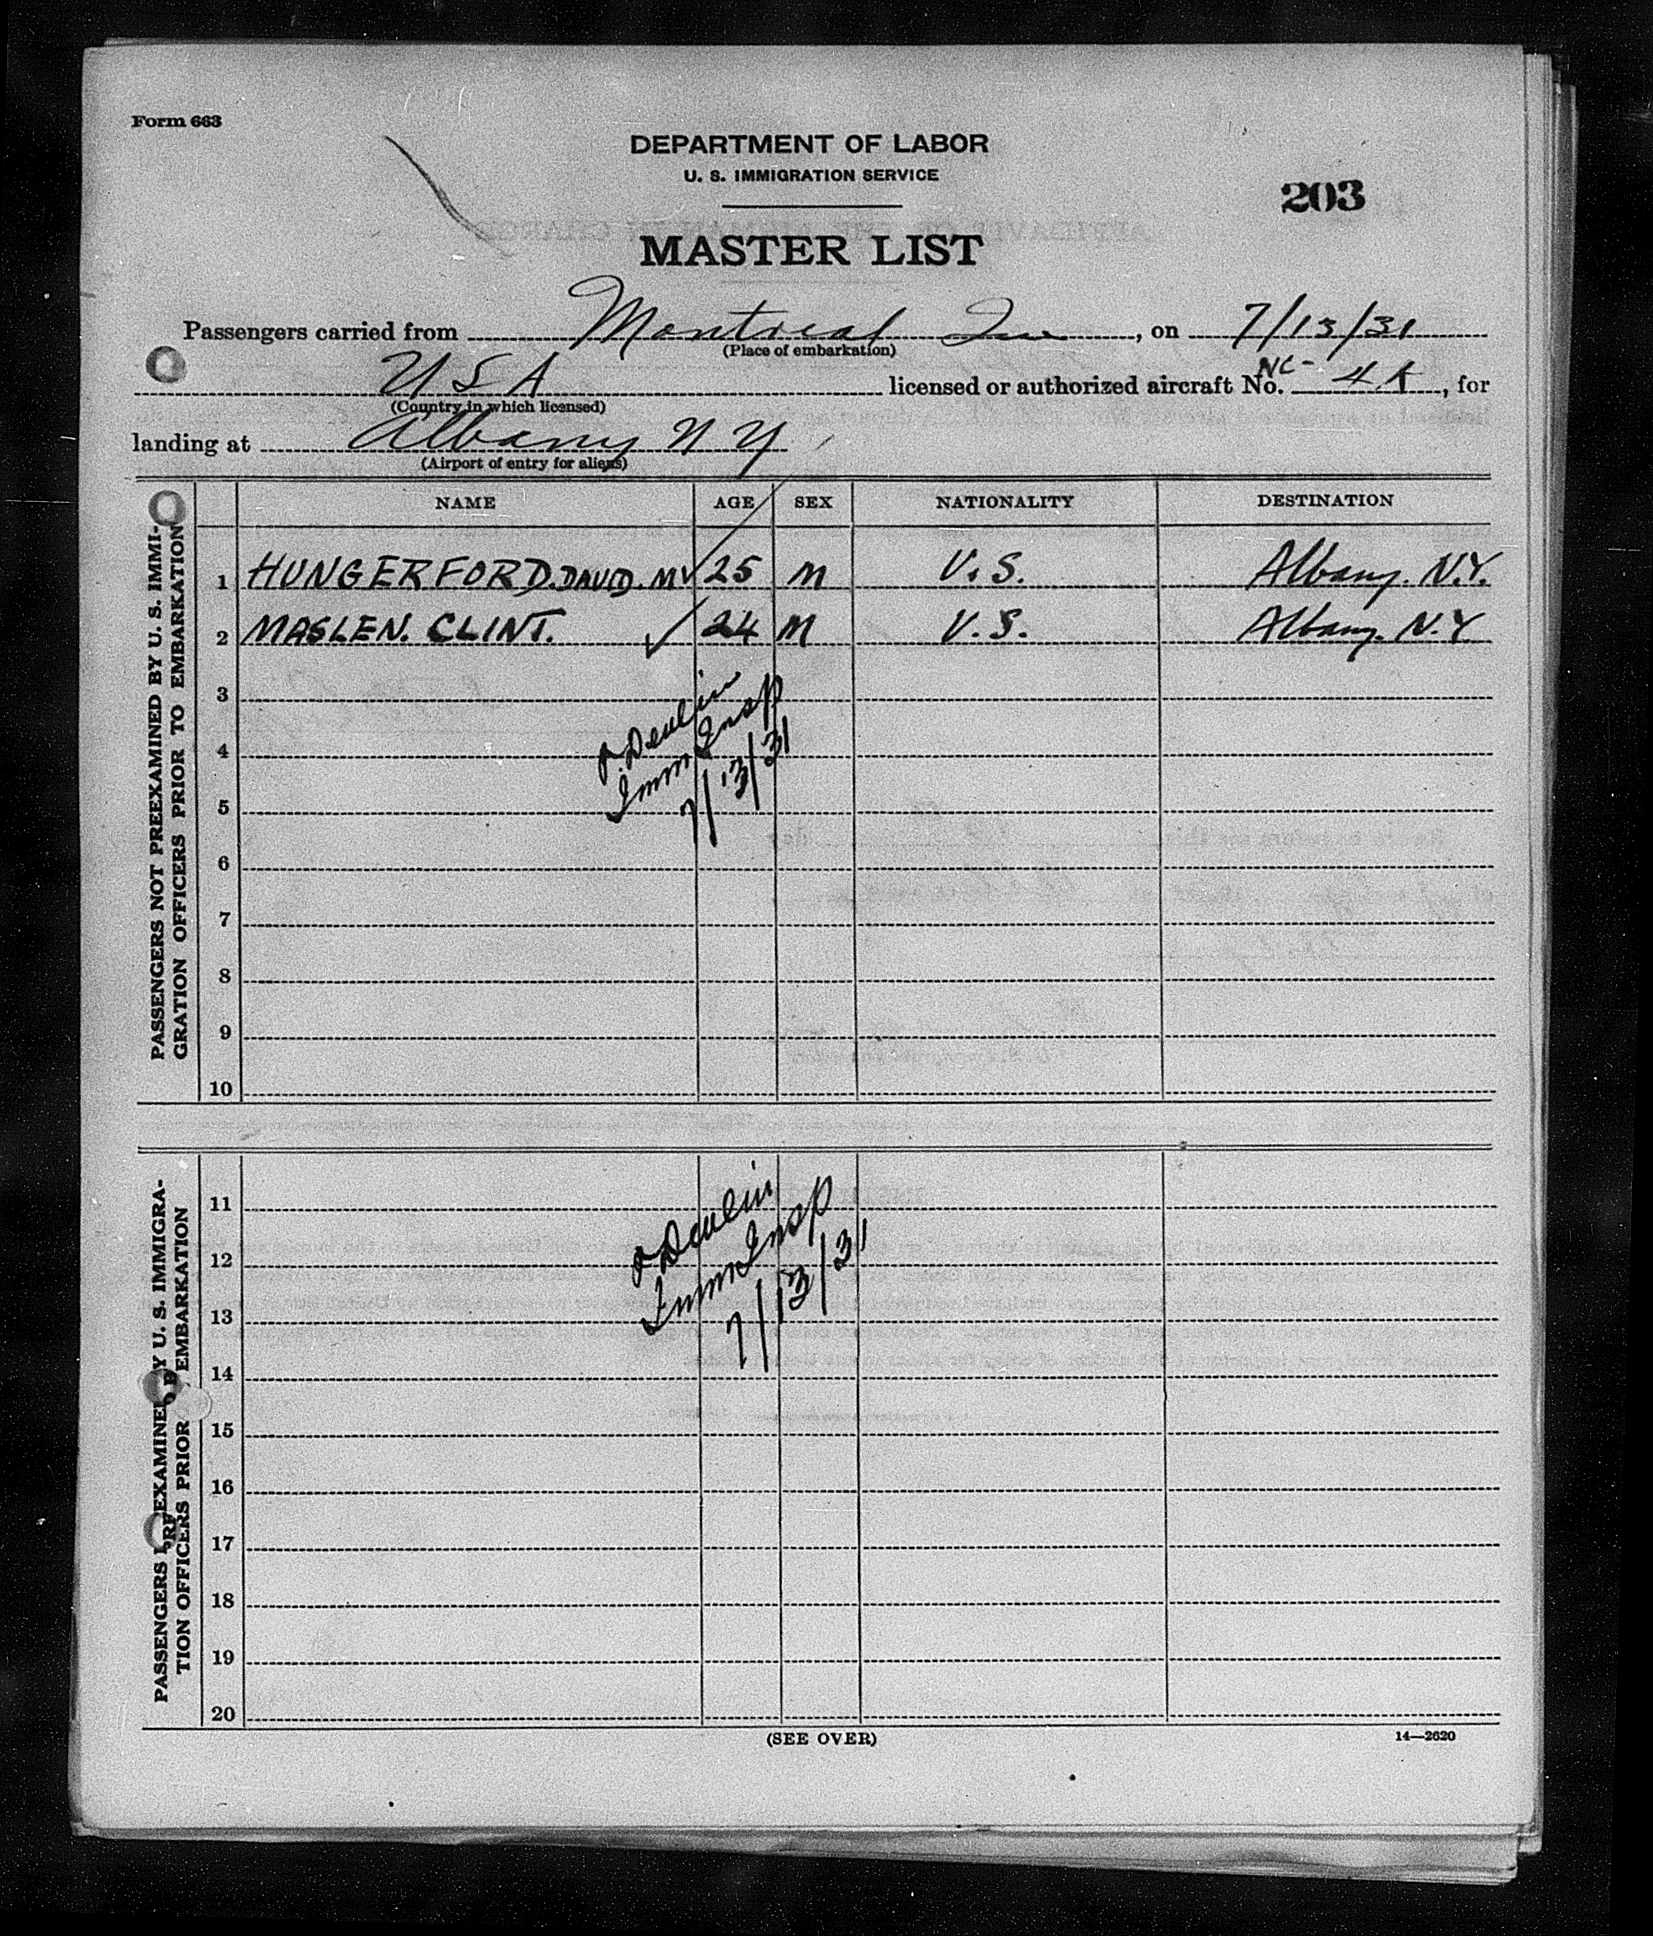 Form 663
DEPARTMENT OF LABOR
U. S. IMMIGRATION SERVICE
203
MASTER LIST
Passengers carried from Montreal Que, on 7/13/31
(Place of embarkation)
USA licensed or authorized aircraft No. NC-4K, for
(Country in which licensed)
landing at Albany NY
(Airport of entry for aliens)
NAME AGE SEX NATIONALITY DESTINATION
PASSENGERS NOT PREEXAMINED BY U. S. IMMI-
GRATION OFFICERS PRIOR TO EMBARKATION
1 HUNGERFORD. DAVID. M ✓ 25 M U.S. Albany. N.Y.
2 MASLEN. CLINT. ✓ 24 M U.S. Albany. N.Y.
3
4
5
6
7
8
9
10
Devlin
Imm Insp
7/13/31
PASSENGERS PREEXAMINED BY U. S. IMMIGRA-
TION OFFICERS PRIOR EMBARKATION
11
12
13
14
15
16
17
18
19
20
Devlin
Imm Insp
7/13/31
(SEE OVER)
14—2620